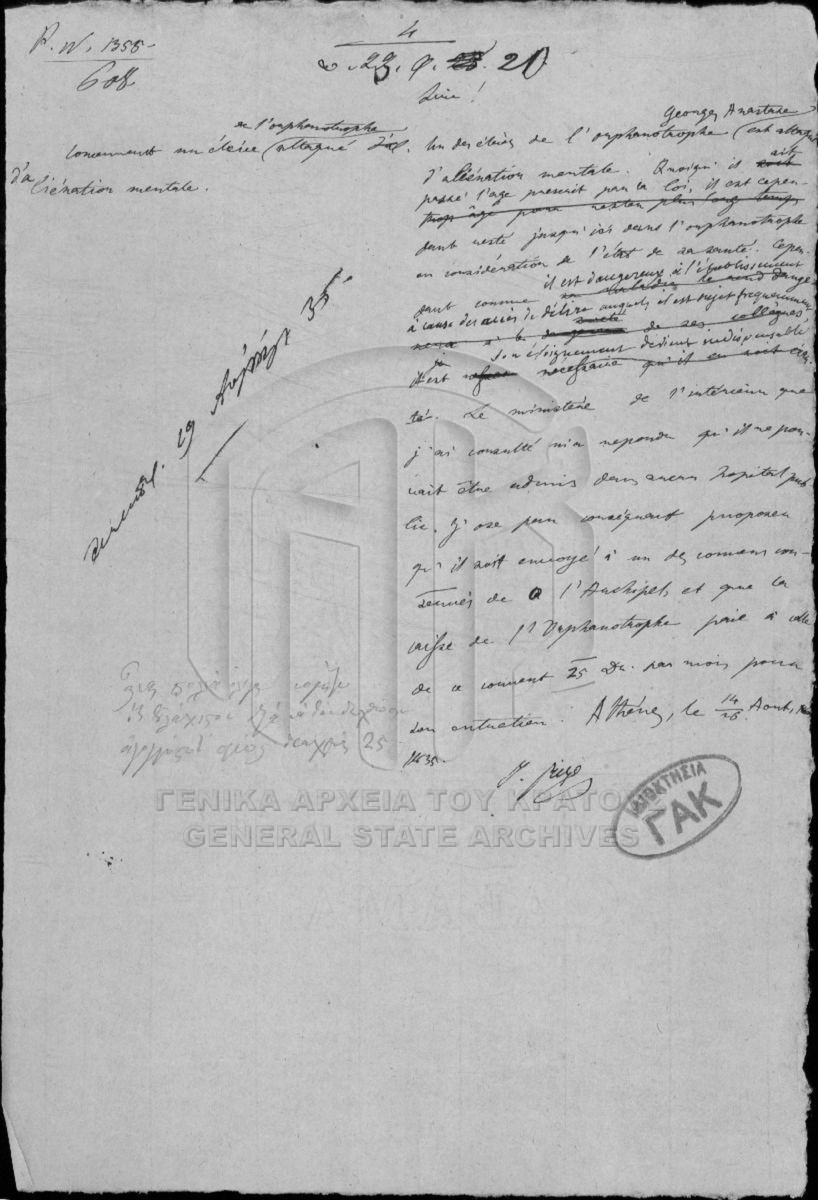 P. N. 1355
608
4
23. 21
Sire!
de l'orphanotrophe
Concernant un élève attaqué
d'aliénation mentale.
Georges Anastase
Un des élèves de l'orphanotrophe est attaqué
d'aliénation mentale. Quoiqu'il ait
passé l'age prescrit par la loi, il est cepen-
trop âgé pour rester plus long temps
dant resté jusqu'ici dans l'orphanotrophe
en considération de l'état de sa santé. Cepen-
il est dangereux à l'établissement
dant comme sa maladie le rend dange-
à cause des accès de délire auxquels il est sujet fréquemment
reux à la société de ses collègues,
son éloignement devient indispensable
il est nécessaire qu'il en soit
Le ministère de l'intérieur que
j'ai consulté m'a repondu qu'il ne pou-
vait être admis dans aucun hopital pub-
lic. J'ose par conséquent proposer
qu'il soit envoyé à un des couvens con-
servés de l'Archipel, et que la
caisse de l'Orphanotrophe paie à celle
de ce couvent 25 Dr. par mois pour
son entretien. Athènes, le 14/26 Aout
1835.
19 Αὐγούστ 35
25
ΓΕΝΙΚΑ ΑΡΧΕΙΑ ΤΟΥ ΚΡΑΤΟΥΣ
GENERAL STATE ARCHIVES
ΙΔΙΟΚΤΗΣΙΑ
ΓΑΚ